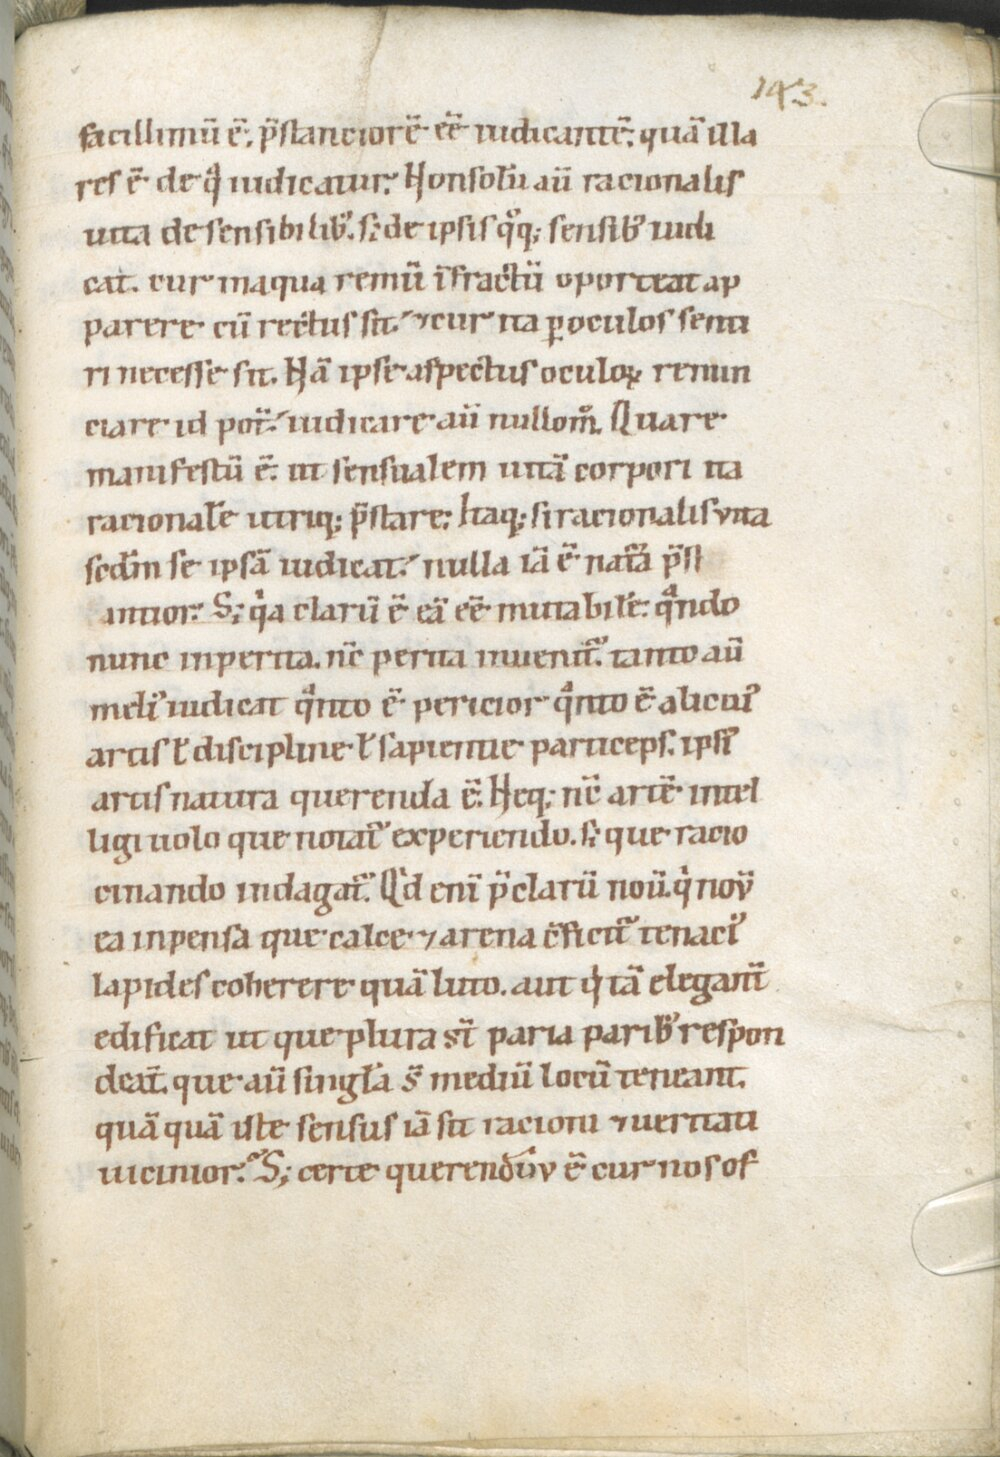 143.
facillimū ē; p̄stanciorē eē iudicantē; quā illa
res ē de q̊ iudicatur; Non solū aū racionalis
uita de sensibilib'. s; de ipsis q̊q; sensib' iudi
cat. cur inaqua remū īfractū oporteat ap
parere cū rectus sit. ⁊ cur ita ꝑ oculos senti
ri necesse sit. Nā ipse aspectus oculoꝝ renun
ciare id pot̄. iudicare aū nullom̊. Quare
manifestū ē. ut sensualem uitā corpori ita
racionalē utriq; p̄stare; Itaq; si racionalis vita
scd̄m se ipsā iudicat. nulla iā ē nat̄a p̄st
antior. S; q̊a clarū ē eā eē mutabilē. qᷓndo
nunc inperita. nc̄ perita inuenit'. tanto aū
meli' iudicat qᷓnto ē pericior qᷓnto ē alicui'
artis ł discipline ł sapientie particeps. ipsi'
artis natura querenda ē. Neq; nc̄ artē intel
ligi uolo que notat' experiendo. s; que racio
cinando indagat'. Qd enī p̄clarū nou. q̇ nov
ea inpensa que calce ⁊ arena c̄ficit' tenaci'
lapides coherere quā luto. aut q̇ tā eleganť
edificat ut que plura st̄ paria parib' respon
deāt. que aū singl̄a s̄ mediū locū teneant.
quā quā iste sensus iā sit racioni ⁊ ueritati
uicinior. S; certe querendūv ē cur nos of